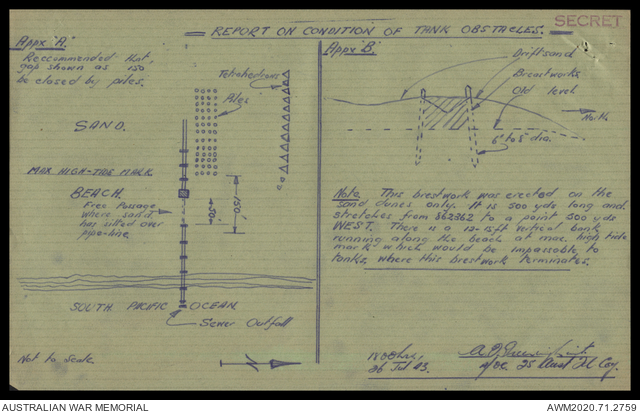 SECRET
REPORT ON CONDITION OF TANK OBSTACLES.
Appx "A".
Reccommended that,
gap shown as 150
be closed by piles.
Tetrahedrons
Piles
SAND.
MAX HIGH-TIDE MARK.
BEACH.
Free Passage
where sand
has silted over
pipe-line
50'
150'
SOUTH PACIFIC OCEAN.
Sewer Outfall
Not to scale.
N
Appx "B".
Drift sand
Breastworks
Old level
6" to 8" dia.
Note. This brestwork was erected on the
sand dunes only. It is 500 yds long and
stretches from 562362 to a point 500 yds
WEST. There is a 12-15ft vertical bank
running along the beach at max. high tide
mark which would be impassable to
tanks, where this brestwork terminates.
26 Jul 43.
Lieut.
25 Aust Fd Coy.
AUSTRALIAN WAR MEMORIAL
AWM2020.71.2759